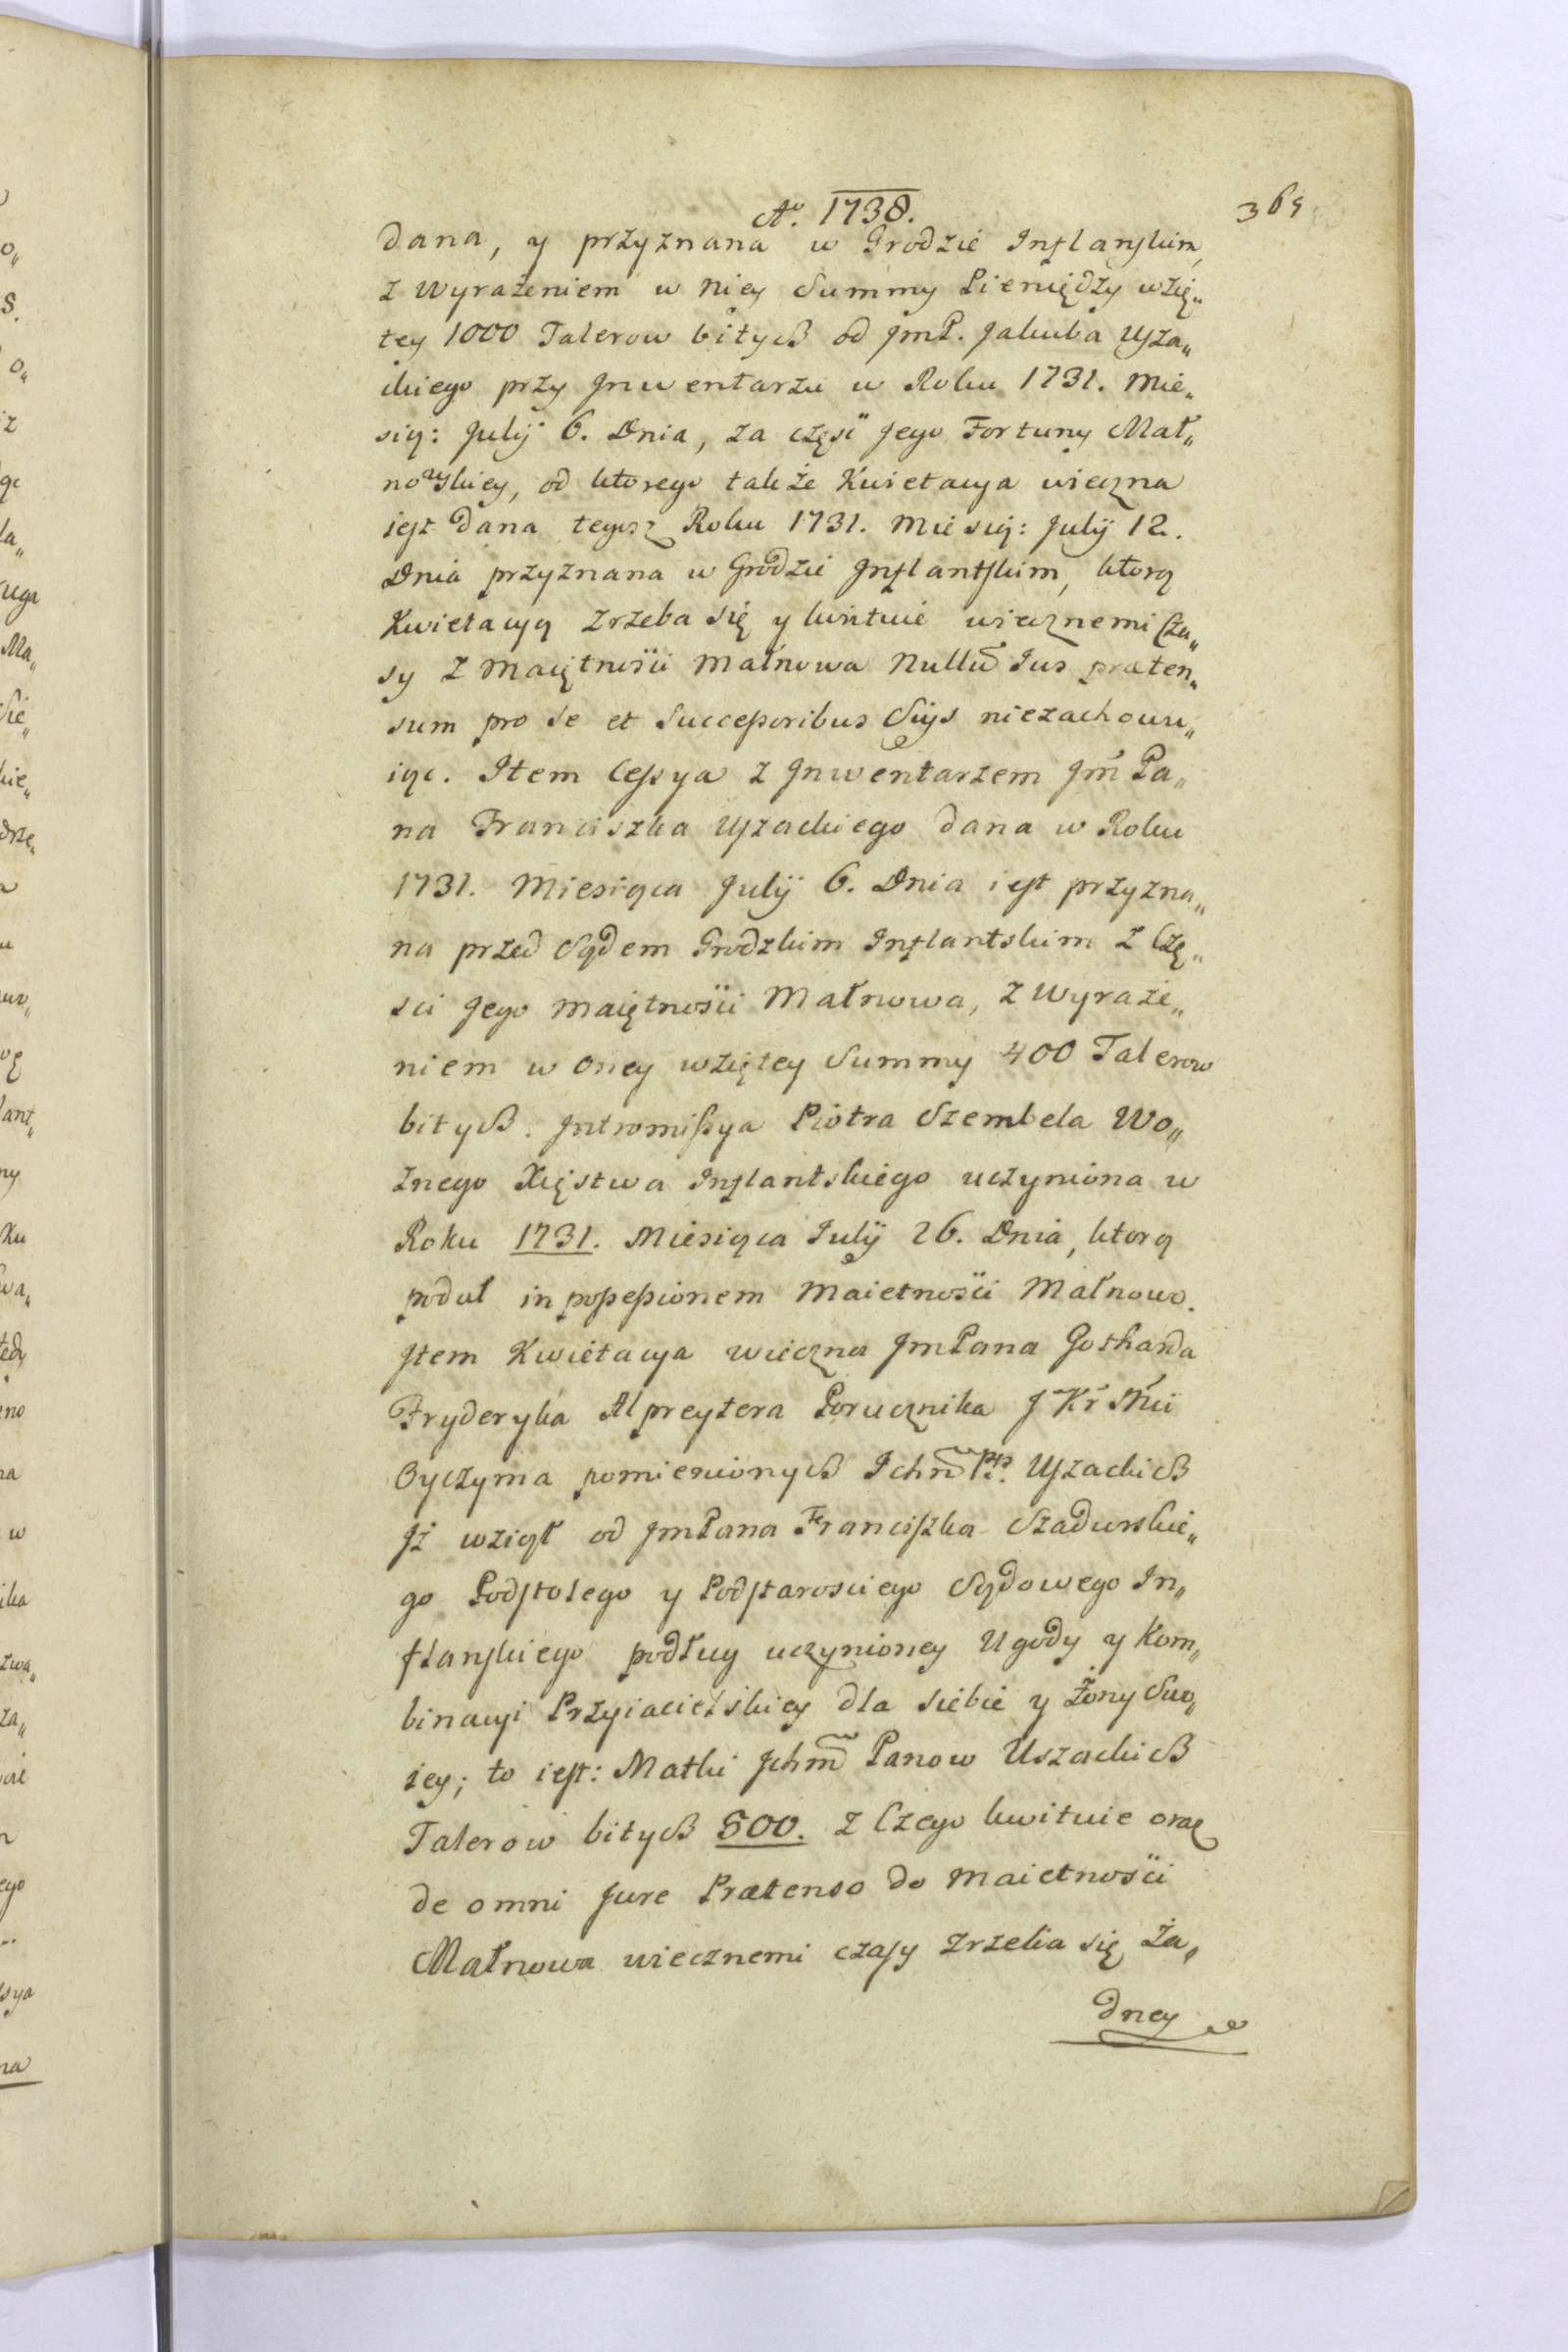 Aᵒ. 1738.
369
dana, y przyznana w Grodzie Inflanſkim,
z wyrażeniem w niey Summy Pieniędzy wzię„
tey 1000 Talerow bitych od JmP. Jakuba Uſza„
ckiego przy Jnwentarzu w Roku 1731. Mie„
sią: Julÿ 6. Dnia, za część Jego Fortuny Mał„
nowſkiey, od ktorego także Kwietacya wieczna
ieſt dana tegosz Roku 1731. Miesią: Julÿ 12.
Dnia przyznana w Grodzie Jnflantſkim, ktorą
Kwietacyą zrzeka się y kwituie wiecznemi Cza„
sy z Maiętności Małnowa Nullũ Jus præten„
sum pro se et Succeſsoribus Suÿs niezachowu„
iąc. Item Ceſsya z Jnwentarzem Jm̃ Pa„
na Franciszka Uſzackiego dana w Roku
1731. Miesiąca Julÿ 6. Dnia ieſt przyzna„
na przed Sądem Grodzkim Inflantskim z Czę„
sci Jego Maiętności Małnowa, z wyraże„
niem w oney wziętey Summy 400 Talerow
bitych. Jntromiſsya Piotra Szembela Wo„
znego Xięstwa Inflantskiego uczyniona w
Roku 1731. Miesiąca Julÿ 26. Dnia, ktorą
podał in poſseſsionem Maietności Małnowo.
Jtem Kwietacya wieczna JmPana Gotharda
Fryderyka Alpreytera Porucznika J Kr̃ Mci
Oyczyma pomienionych Ichm̃ PP. Uſzackich
Jż wziął od JmPana Franciſzka Szadurskie„
go Podſtolego y Podſtarosciego Sądowego In„
flanſkiego podług uczynioney Ugody y Kom„
binacyi Przyiacielskiey dla siebie y Żony Swo„
iey; to ieſt: Matki Jchm̃ Panow Uszackich
Talerow bitych 500. z Czego kwituie oraz
de omni Jure Prætenso do Maietności
Małnowa wiecznemi czaſy zrzeka się, Ża„
dney